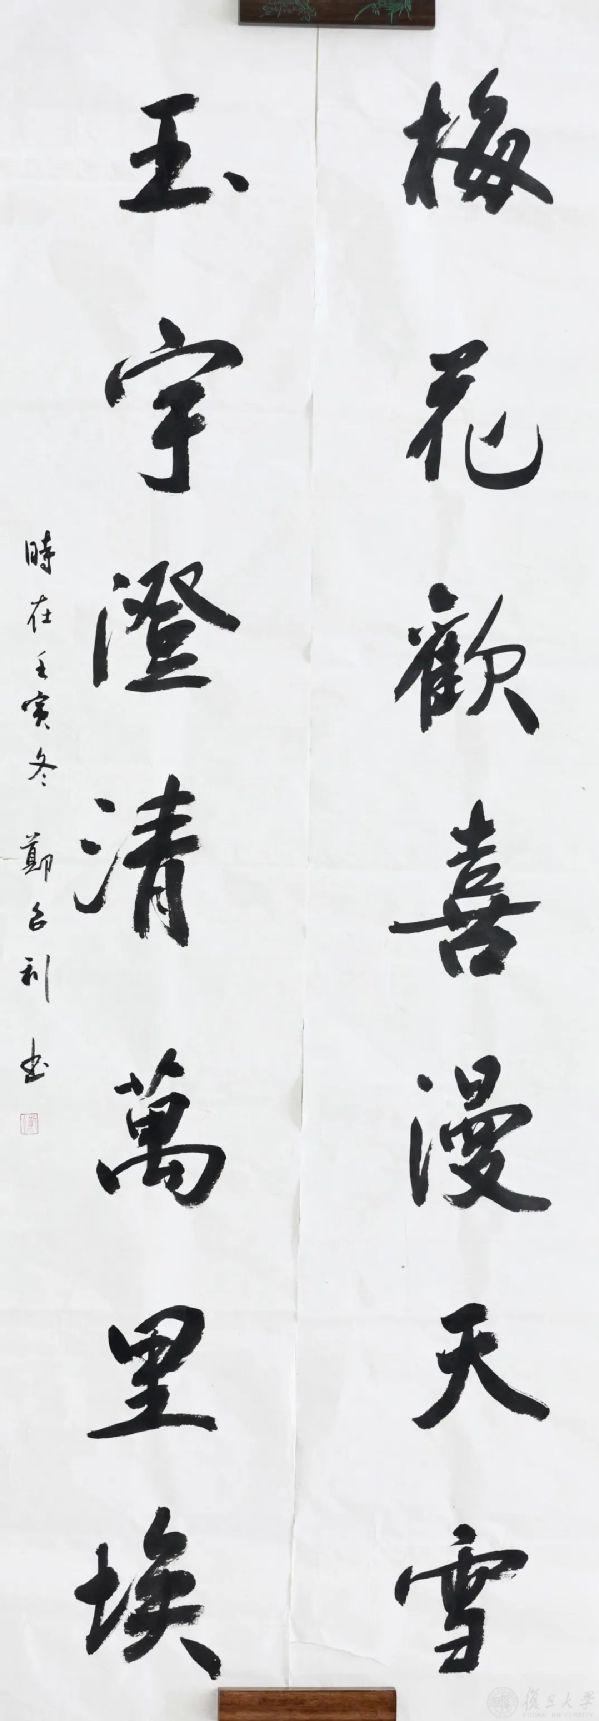 梅花歡喜漫天雪
玉宇澄清萬里埃
時在壬寅冬 鄭召利書
復旦大學
FUDAN UNIVERSITY